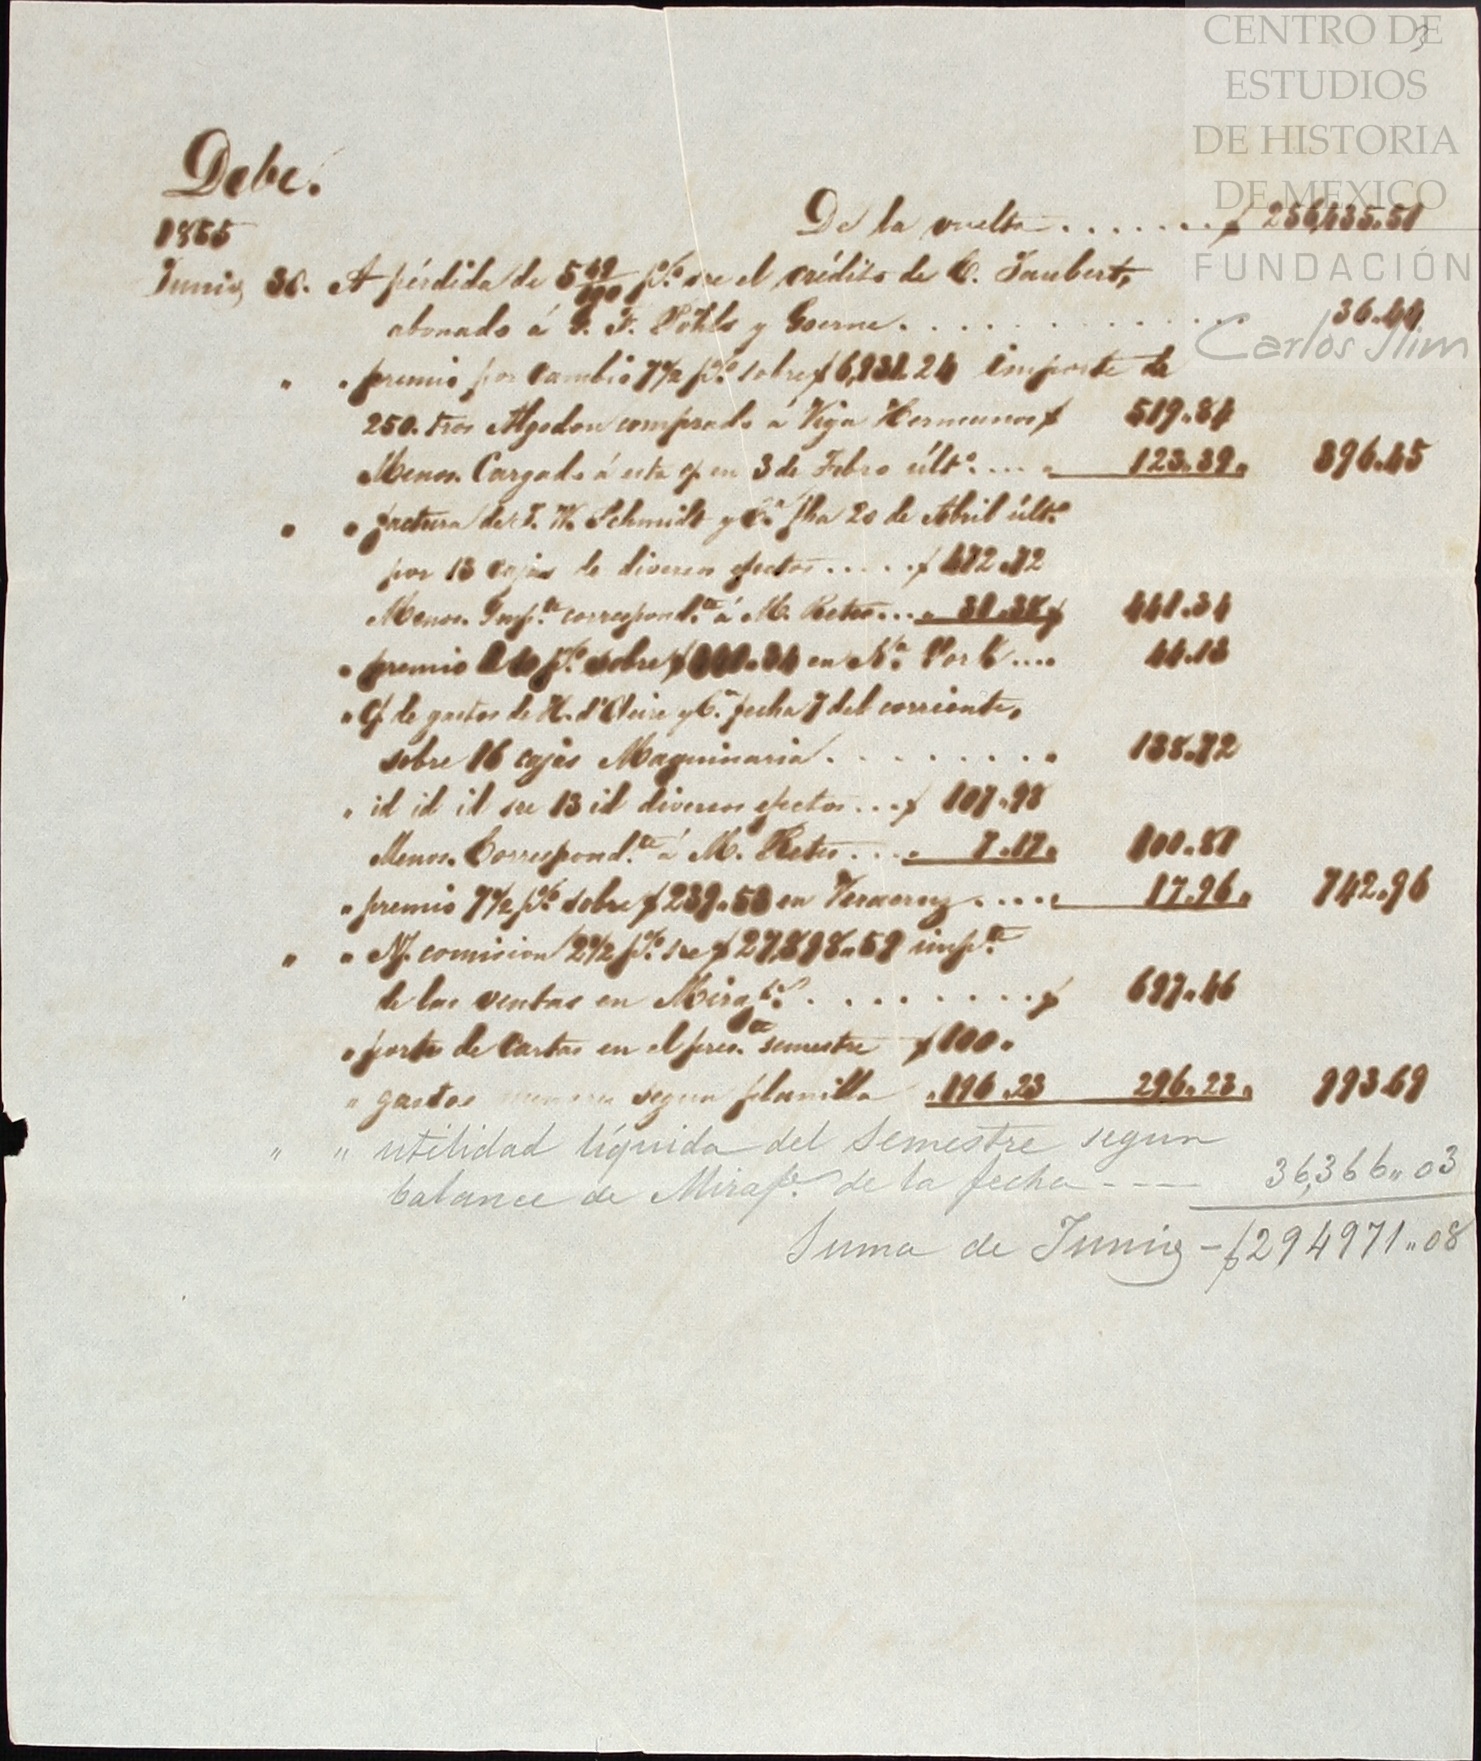 CENTRO DE
ESTUDIOS
DE HISTORIA
DE MEXICO
FUNDACIÓN
Carlos Slim
3
Debe.
1865
De la vuelta . . . . . . . $ 256,435.51
Junio 30. A pérdida de 5 49/100 p% sre el crédito de C. Jaubert,
abonado á G. F. Pöhls y Goerne . . . . . . . . . . 36.44
" " premio por cambio 7½ p% sobre $ 6,931.24 importe de
250. tros Algodon comprado a Vega Hermanos $ 519.84
Menos. Cargado á esta cta en 3 de Febro últo. . . . " 123.39 " 396.45
" " factura de F. W. Schmidt y Ca. fha 20 de Abril últo
por 13 cajas de diversos efectos . . . . . $ 472.72
Menos. Impte correspondte á M. Retes . . . " 31.38 $ 441.34
" premio á 10 p% sobre $ 441.34 en Na. York . . . . 44.13
" Cta de gastos de H. d'Oleire y Ca. fecha 7 del corriente,
sobre 16 cajas Maquinaria . . . . . . . . " 138.72
" id id id sre 13 id diversos efectos . . . $ 107.98
Menos. Correspondte á M. Retes . . . . " 7.17 " 100.81
" premio 7½ p% sobre $ 239.53 en Veracruz . . . . " 17.96 " 742.96
" " N/. comision 2½ p% sre $ 27,898.59 impte
de las ventas en Miraflo . . . . . . . . . $ 697.46
" porte de cartas en el preste semestre $ 100 "
" gastos menores segun planilla " 196.23 296.23 " 993.69
" " utilidad líquida del semestre segun
balance de Mirafs. de la fecha - - - - 36,366 " 03
Suma de Junio - $ 294971 " 08